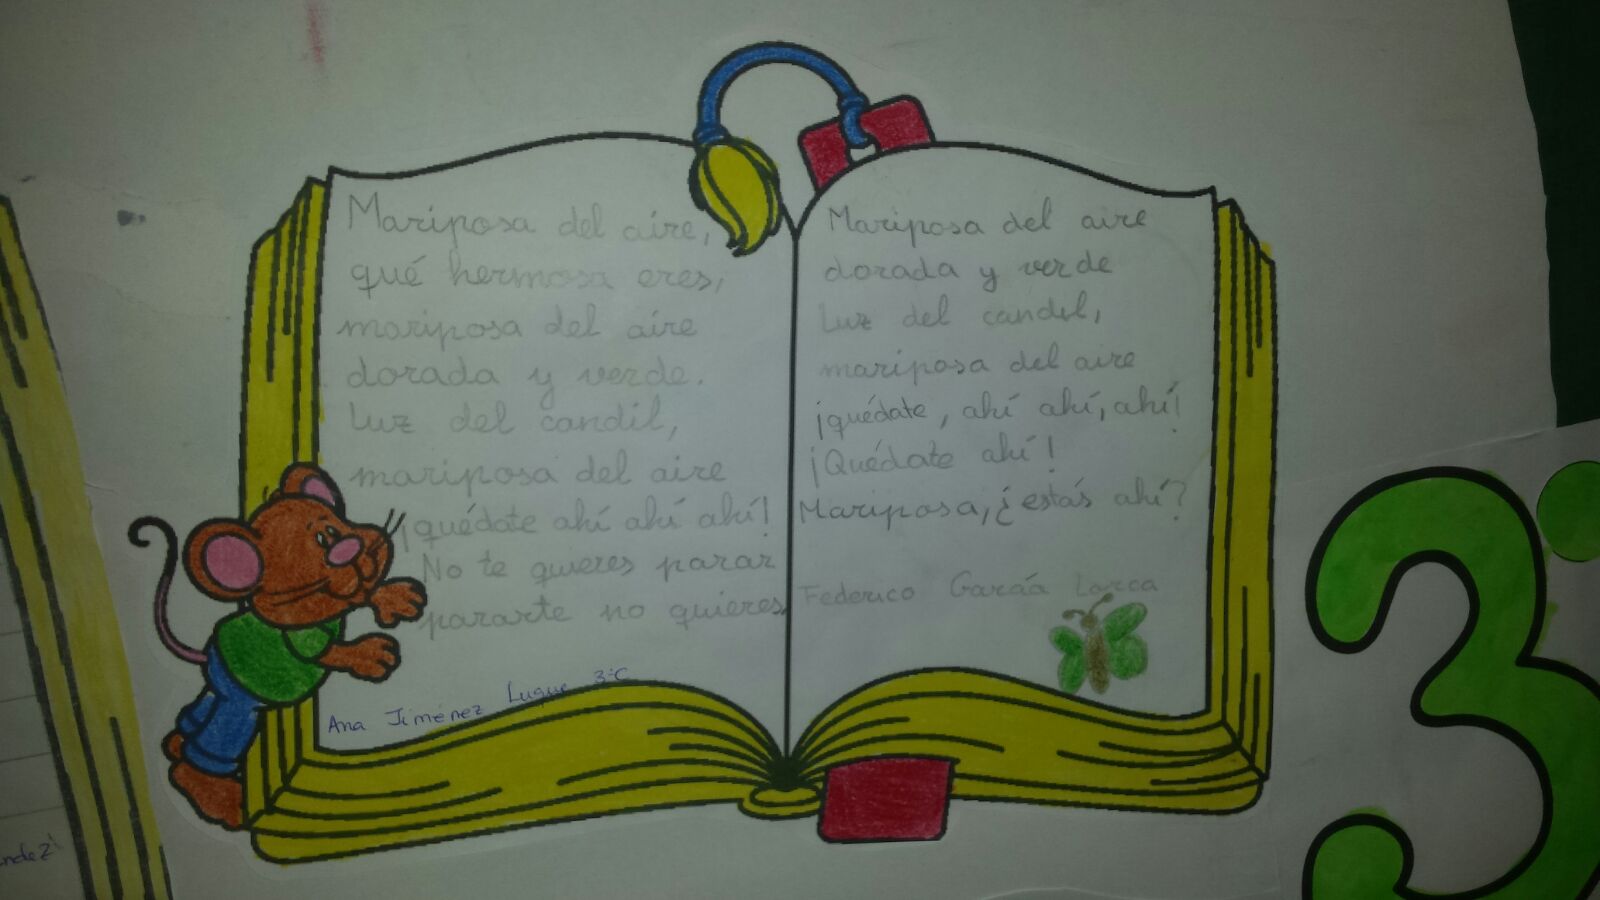 Mariposa del aire,
qué hermosa eres,
mariposa del aire
dorada y verde.
Luz del candil,
mariposa del aire
¡quédate ahí ahí ahí!
No te quieres parar
pararte no quieres
Ana Jiménez Luque 3ºC
Mariposa del aire
dorada y verde
Luz del candil,
mariposa del aire
¡quédate, ahí ahí, ahí!
¡Quédate ahí!
Mariposa, ¿estás ahí?
Federico García Lorca
3º